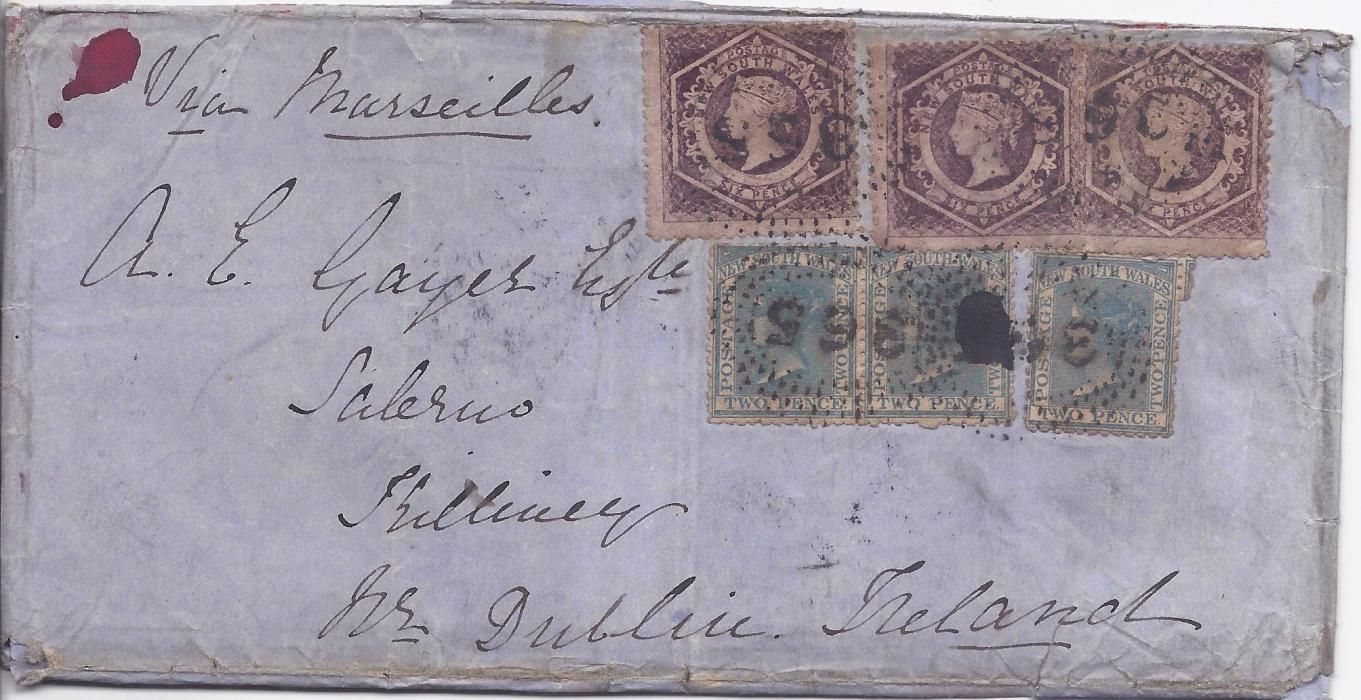 Via Marseilles.
A. E. Gayer Esqre
Salerno
Killiney
Nr Dublin. Ireland
POSTAGE
NEW SOUTH WALES
SIX PENCE
POSTAGE
NEW SOUTH WALES
SIX PENCE
POSTAGE
SOUTH WALES
SIX PENCE
NEW SOUTH WALES
POSTAGE
TWO PENCE
TWO PENCE
NEW SOUTH WALES
POSTAGE
TWO PENCE
NEW SOUTH WALES
POSTAGE
TWO PENCE
TWO PENCE